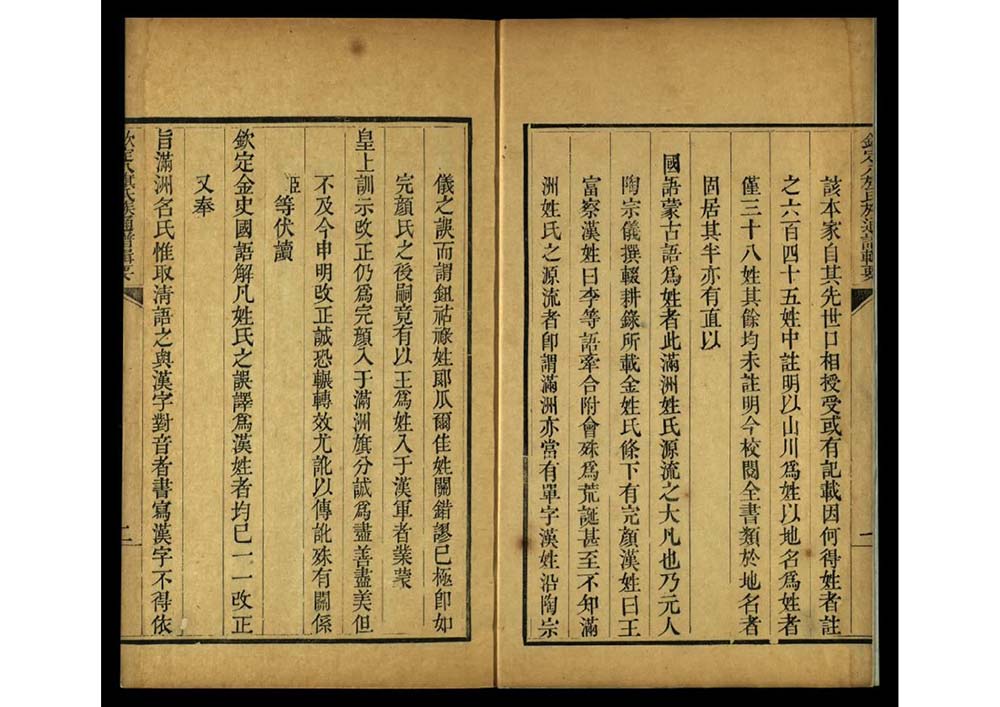 欽定八旗氏族通譜輯要
一
該本家自其先世口相授受或有記載因何得姓者註
之六百四十五姓中註明以山川爲姓以地名爲姓者
僅三十八姓其餘均未註明今校閱全書類於地名者
固居其半亦有直以
國語蒙古語爲姓者此滿洲姓氏源流之大凡也乃元人
陶宗儀撰輟耕錄所載金姓氏條下有完顏漢姓曰王
富察漢姓曰李等語牽合附會殊爲荒誕甚至不知滿
洲姓氏之源流者卽謂滿洲亦當有單字漢姓沿陶宗
儀之誤而謂鈕祜祿姓郎瓜爾佳姓關錯謬已極卽如
完顏氏之後嗣竟有以王爲姓入于漢軍者業蒙
皇上訓示改正仍爲完顏入于滿洲旗分誠爲盡善盡美但
不及今申明改正誠恐輾轉效尤訛以傳訛殊有關係
臣等伏讀
欽定金史國語解凡姓氏之誤譯爲漢姓者均已一一改正
又奉
旨滿洲名氏惟取清語之與漢字對音者書寫漢字不得依
欽定八旗氏族通譜輯要
二